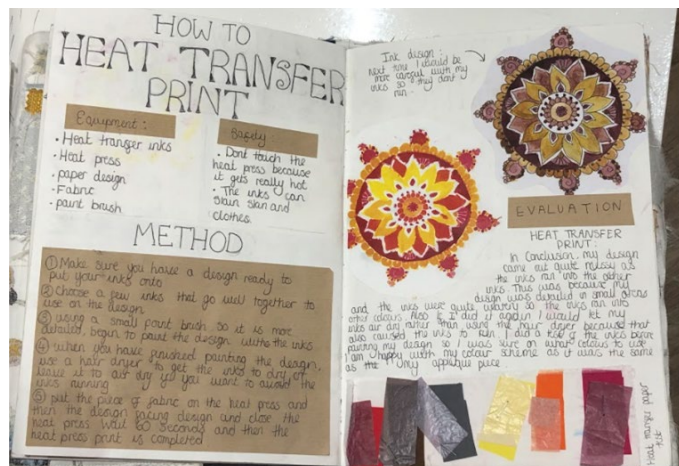 HOW TO
HEAT TRANSFER
PRINT
Equipment:
• Heat transfer inks
• Heat press
• paper design
• Fabric
• paint brush
Safety:
• Dont touch the
heat press because
it gets really hot
• The inks can
stain skin and
clothes.
METHOD
① Make sure you have a design ready to
put your inks onto
② Choose a few inks that go well together to
use on the design
③ using a small paint brush so it is more
detailed, begin to paint the design with the inks
④ when you have finished painting the design,
use a hair dryer to get the inks to dry, or
leave it to air dry if you want to avoid the
inks running
⑤ put the piece of fabric on the heat press and
then the design facing design and close the
heat press wait 60 seconds and then the
heat press print is completed
Ink design:
next time I would be
more careful with my
inks so they don't
run.
EVALUATION
HEAT TRANSFER
PRINT:
In conclusion, my design
came out quite messy as
the inks ran into the other
inks. This was because my
design was detailed in small areas
and the inks were quite watery so the inks ran into
other colours. Also if I did it again I would let my
inks air dry rather than using the hair dryer because that
also caused the inks to run. I did a test of the inks before
painting my design so I was sure on what colours to use
I am happy with my colour scheme as it was the same
as the my applique piece
heat transfer paper
test